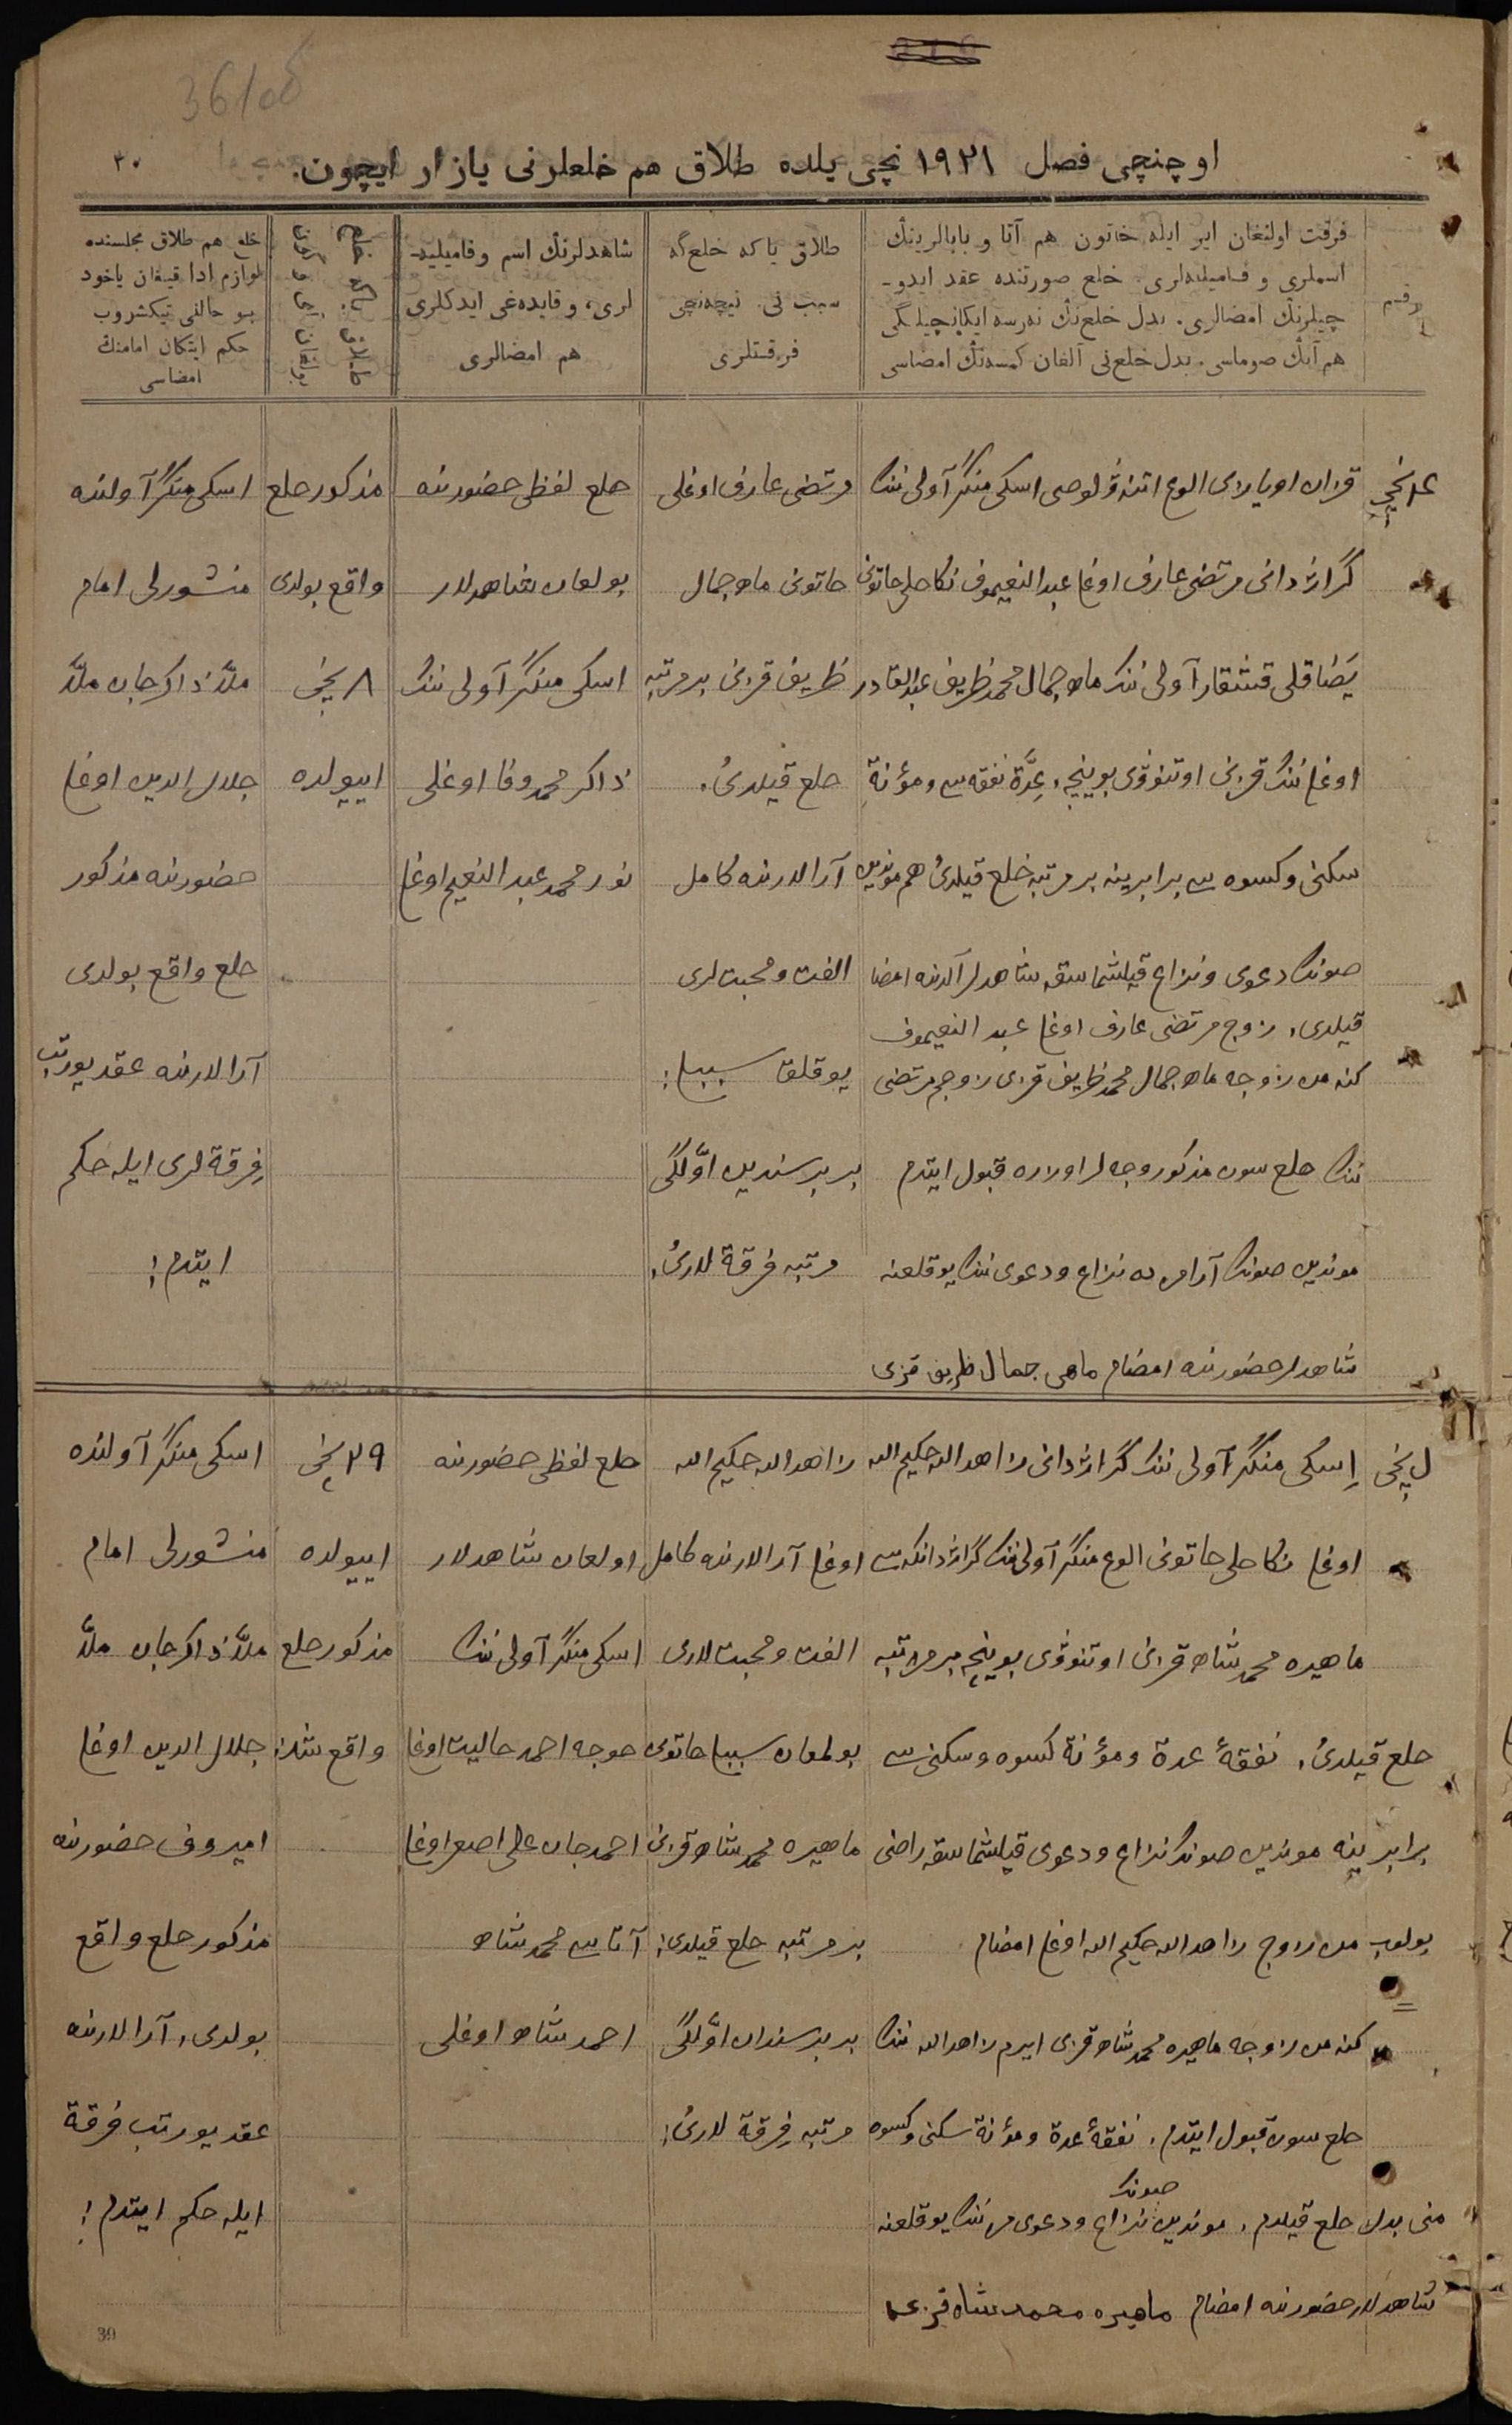 36 об
اوچنچی فصل ۱۹۲۱ نچی یلده طلاق هم خلعلرنی یازار ایچون.
۳۰
فرقت اولنغان ایر ایله خاتون هم آتا و بابالرینڭ
اسملری و فامیلیه‌لری. خلع صورتنده عقد ایدو-
چیلرنڭ امضالری. بدل خلع‌نڭ نه‌رسه ایکانچیلگی
هم آنڭ صوماسی. بدل خلع‌نی آلغان کمسه‌نڭ امضاسی
طلاق یاکه خلع‌گه
سبب نی. نیچه‌نچی
فرقتلری
شاهدلرنڭ اسم و فامیلیه-
لری، و قایده‌غی ایدکلری
هم امضالری
طلاق یاکه خلع
بولغان آی و کون
خلع هم طلاق مجلسنده
لوازم ادا قیلغان یاخود
بو حالنی تیکشروب
حکم ایتکان امامنڭ
امضاسی
قزان اویازی الوغ اتنه ڤولوصی اسکی منگر آولی ننک
گراژدانی مرتضی عارف اوغلی عبد النعیموف نکاحلی خاتونی
قشقار آولی ننک ماه جمال محمد ظریف عبد القادر
اوغلی ننک قزینی اوتنوڤی بوینچه، عدّة نفقه سی و مؤنة
سکنی و کسوه سی برابرینه بر مرتبه خلع قیلدیُ هم موندین
صونک دعوی و نزاع قیلشماسقه شاهدلر آلدنده امضا
قیلدی، زوج مرتضی عارف اوغلی عبد النعیموف
کنه من زوجه ماه جمال محمد ظریف قزی زوجم مرتضی
ننک خلع سون مذکور وجه لر اوزره قبول ایتدم
موندین صونک آرامزده نزاع و دعوی ننک یوقلغنه
شاهدلر حضورنده امضام ماهی جمال ظریف قزی
مرتضی عارف اوغلی
خاتونی ماه جمال
ظریف قزینی بر مرتبه
خلع قیلدیُ.
آرالارنده کامل
الفت و محبت لری
یوقلق سببلی:
بر برسندین اوّلگی
مرتبه فرقة لاریُ.
خلع لفظی حضورنده
بولغان شاهدلار
اسکی منگر آولی ننک
ذاکر محمد وفا اوغلی
نور محمد عبد النعیم اوغلی
مذکور خلع
واقع بولدی
۸ ینچی
اییولده
اسکی منگر آولنده
منشورلی امام
ملّا ذاکرجان ملّا
جلال الدین اوغلی
حضورنده مذکور
خلع واقع بولدی
آرالارنده عقد یورتب
فرقة لری ایله حکم
ایتدم؛
اسکی منگر آولی ننک گراژدانی زاهد الله حکیم الله
اوغلی نکاحلی خاتونی الوغ منگر آولی ننک گراژدانکه سی
ماهیره محمد شاه قزینی اوتنوڤی بوینچه بر مرتبه
خلع قیلدیُ، نفقهٔ عدة و مؤنة کسوه و سکنی سی
برابرینه موندین صونک نزاع و دعوی قیلشماسقه راضی
بولوب من زوج زاهد الله حکیم الله اوغلی امضام
کنه من زوجه ماهیره محمد شاه قزی ایرم زاهد الله ننک
خلع سون قبول ایتدم، نفقهٔ عدة و مؤنة سکنی و کسوه
منی بدل خلع قیلدم، موندین صونک نزاع و دعوی م ننک یوقلغنه
شاهدلار حضورنده امضام ماهیره محمد شاه قزی
زاهد الله حکیم الله
اوغلی آرالارنده کامل
الفت و محبت لاری
بولمغان سببلی خاتونی
ماهیره محمد شاه قزینی
بر مرتبه خلع قیلدی؛
بر برسندان اوّلگی
مرتبه فرقة لاریُ؛
خلع لفظی حضورنده
اولغان شاهدلار
اسکی منگر آولی ننک
خوجه احمد اوغلی
احمدجان علی اصغر اوغلی
آتاسی محمد شاه
احمد شاه اوغلی
۲۹ ینچی
اییولده
مذکور خلع
واقع شد؛
اسکی منگر آولنده
منشورلی امام
ملّا ذاکرجان ملّا
جلال الدین اوغلی
امیروف حضورنده
مذکور خلع واقع
بولدی، آرالارنده
عقد یورتب فرقة
ایله حکم ایتدم؛
30